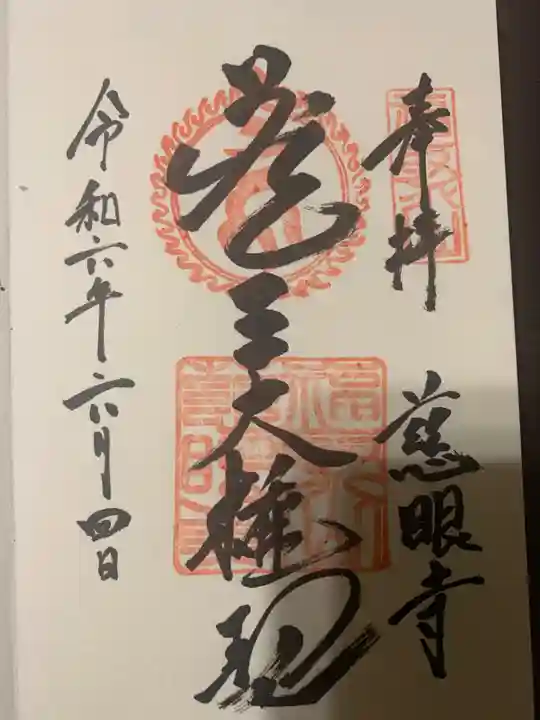 奉拝
慈眼寺
蔵王大権現
令和六年六月四日